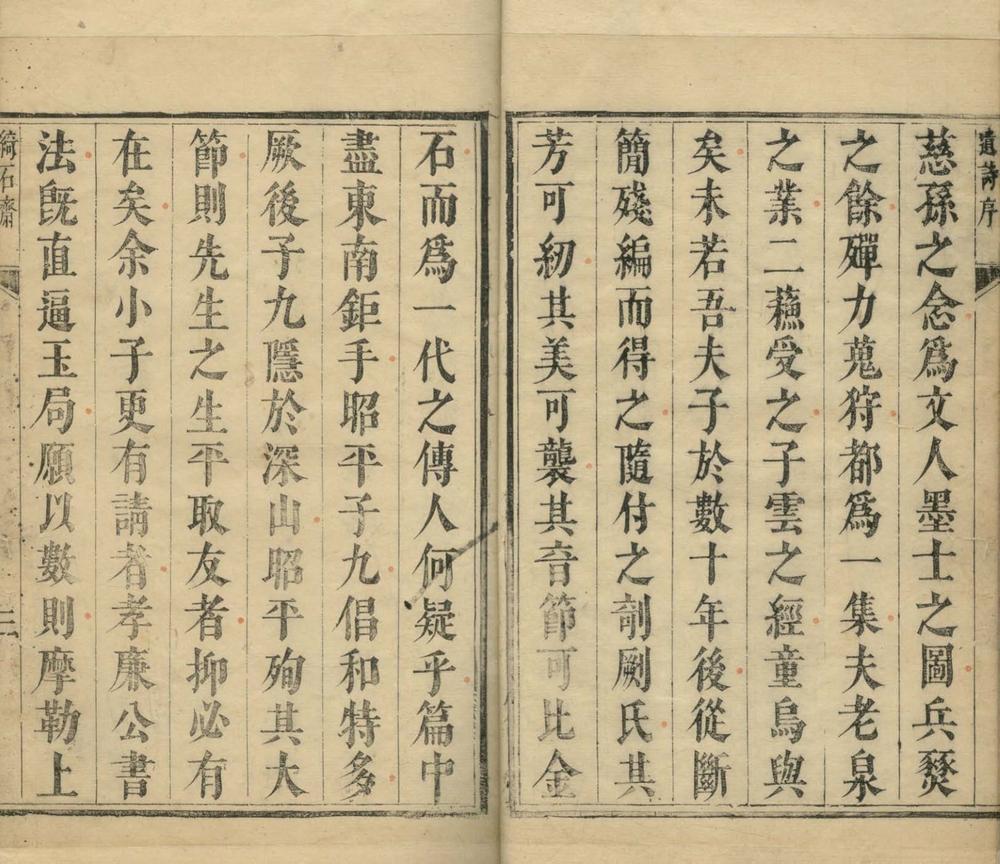 遺詩序
慈孫之念爲文人墨士之圖兵燹
之餘殫力蒐狩都爲一集夫老泉
之業二蘓受之子雲之經童烏與
矣未若吾夫子於數十年後從斷
簡殘編而得之隨付之剞劂氏其
芳可紉其美可襲其音節可比金
石而爲一代之傳人何疑乎篇中
盡東南鉅手昭平子九倡和特多
厥後子九隱於深山昭平殉其大
節則先生之生平取友者抑必有
在矣余小子更有請者孝廉公書
法旣直逼玉局願以數則摩勒上
綺石齋
二